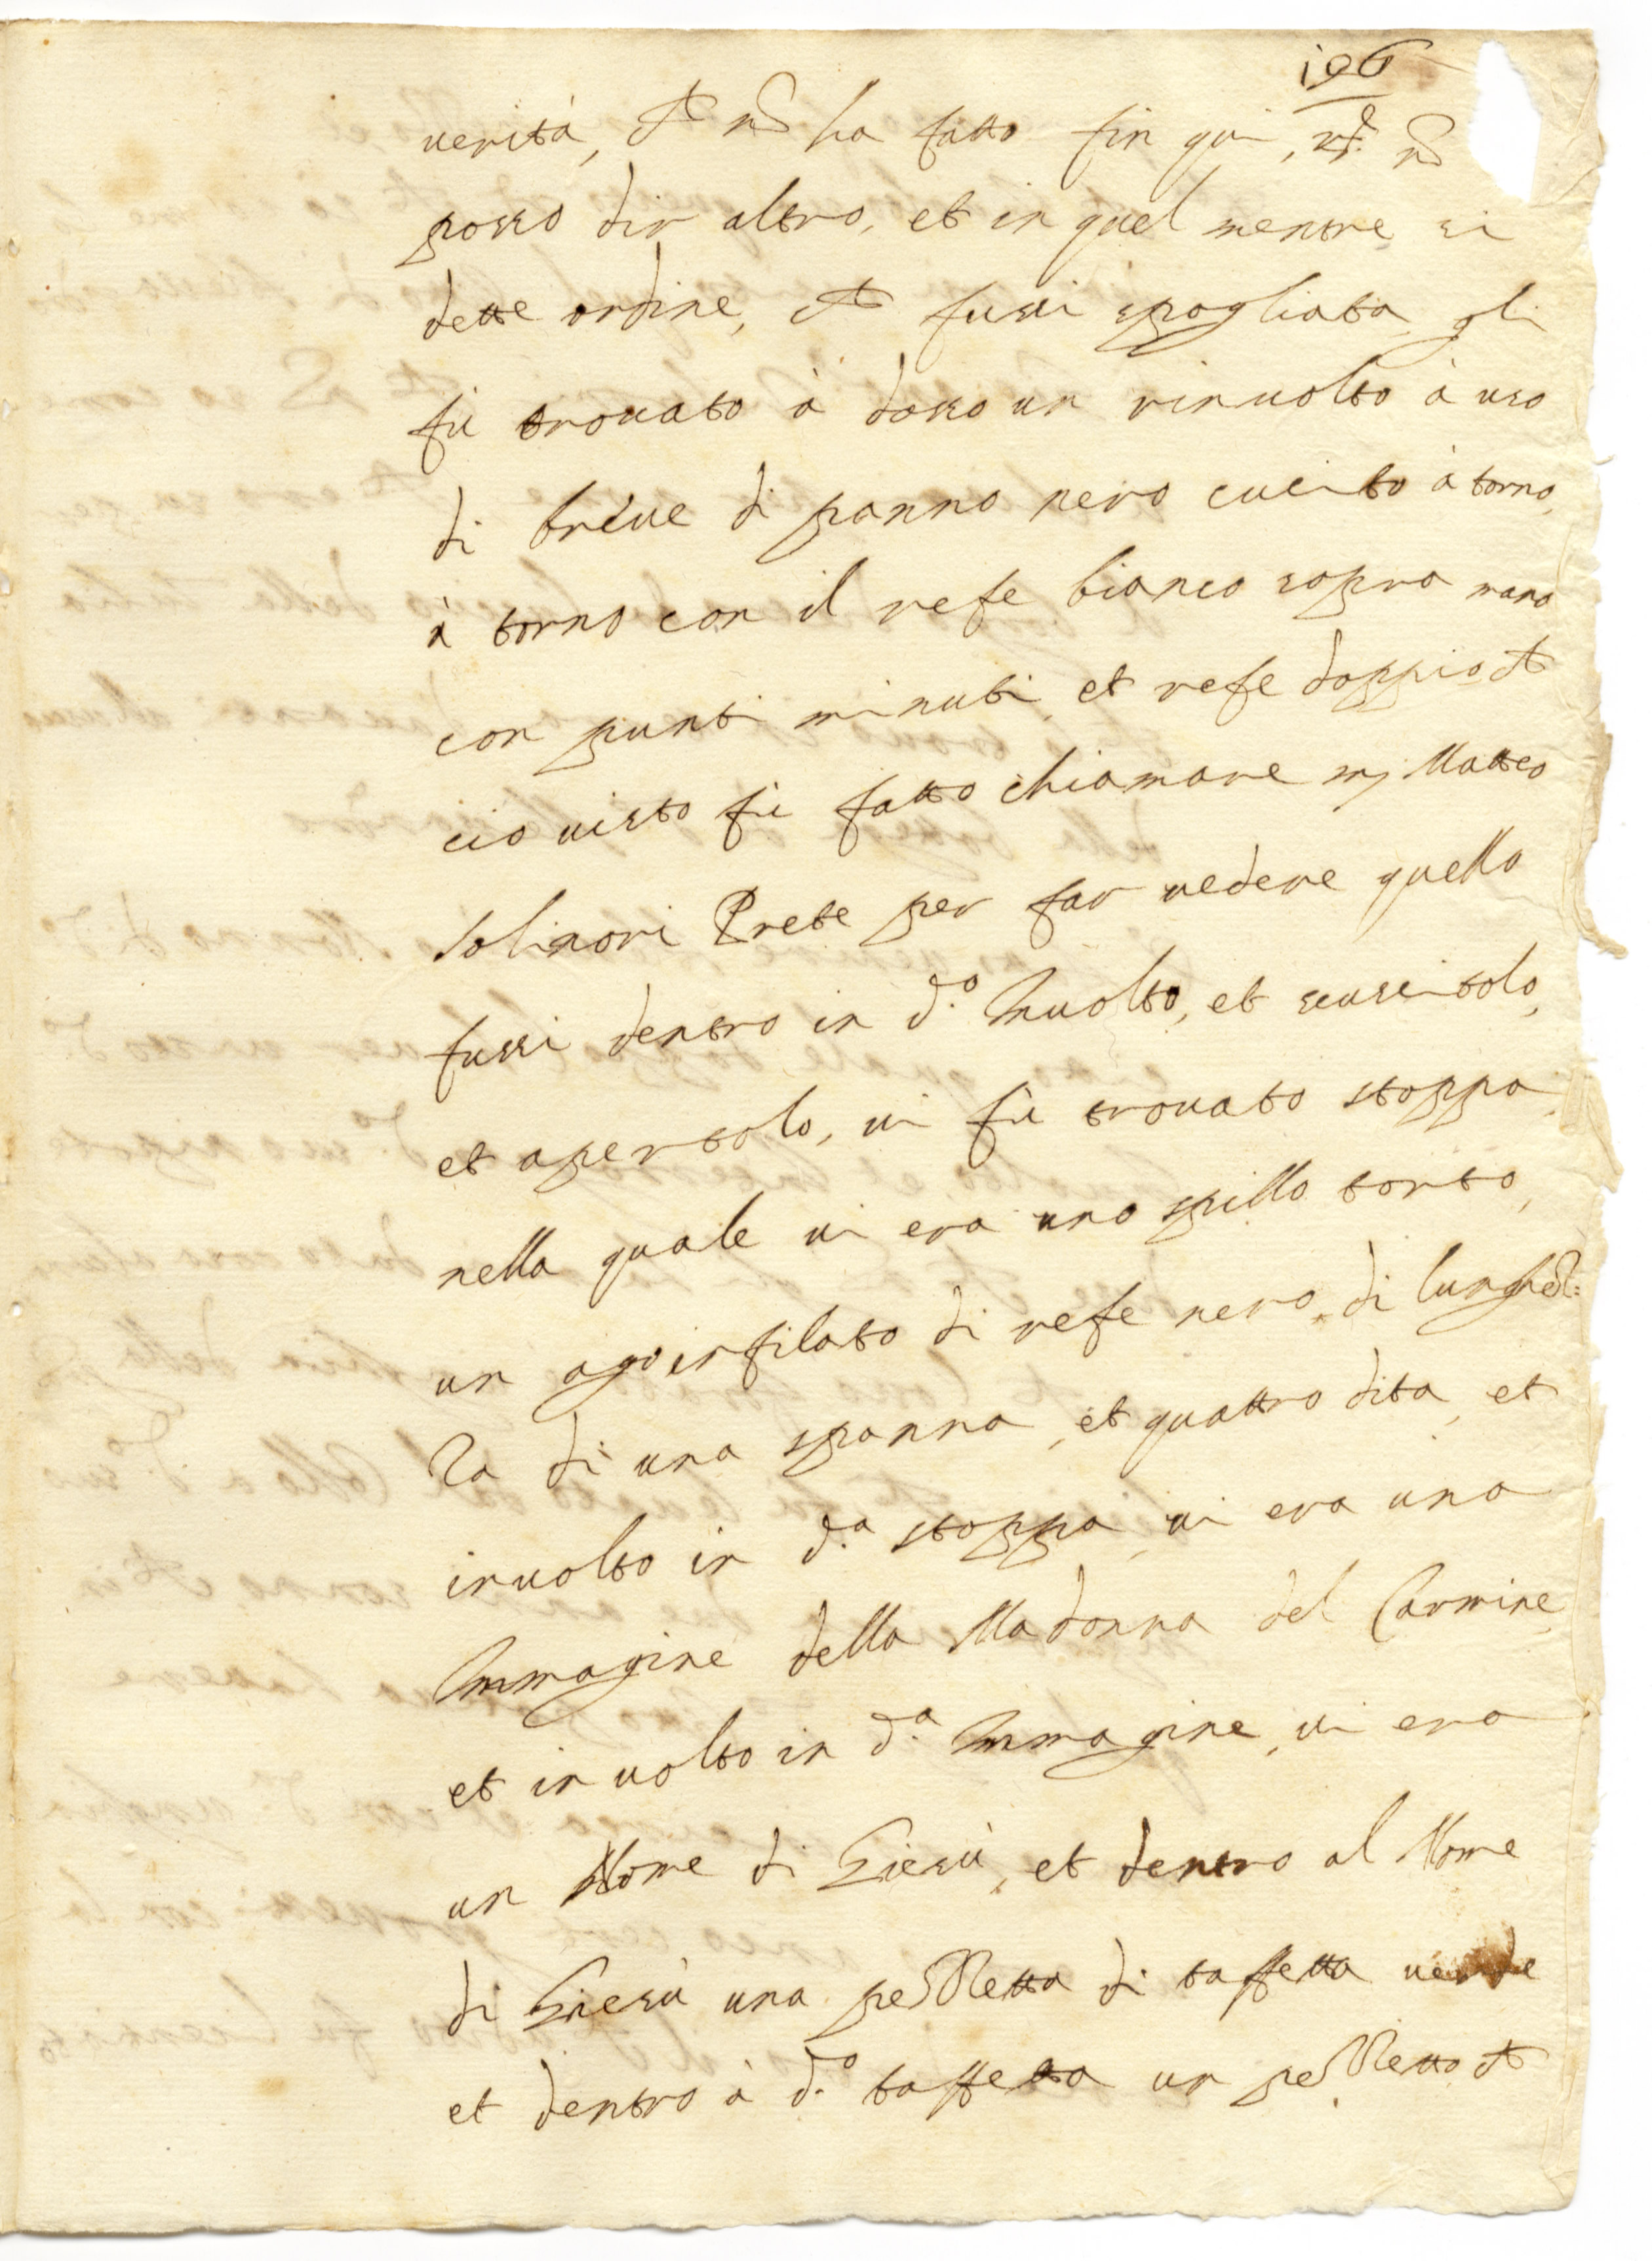 196
uerità, che nō ha fatto fin qui, rx. nō
posso dir altro, et in quel mentre si
dette ordine, che fussi spogliata gli
fù trouato à dosso un rinuolto à uso
di breue di panno nero cucito à torno,
à torno con il refe bianco sopra mano
con punti minuti et refe doppio che
cio uisto fù fatto chiamare mj Matteo
Solinori Prete per far uedere quello
fussi dentro in d.o Inuolto, et scuscitolo,
et apertolo, ui fù trouato stoppa,
nella quale ui era uno spillo torto,
un ago infilato di refe nero, di lunghez:
za di una spanna, et quattro dita, et
inuolto in d.a stoppa ui era una
Immagine della Madonna del Carmine,
et inuolto in d.a Immagine, ui era
un Nome di Giesù, et dentro al Nome
di Giesù una pezzetta di taffetta uerde
et dentro à d.o taffetta un pezzetto che